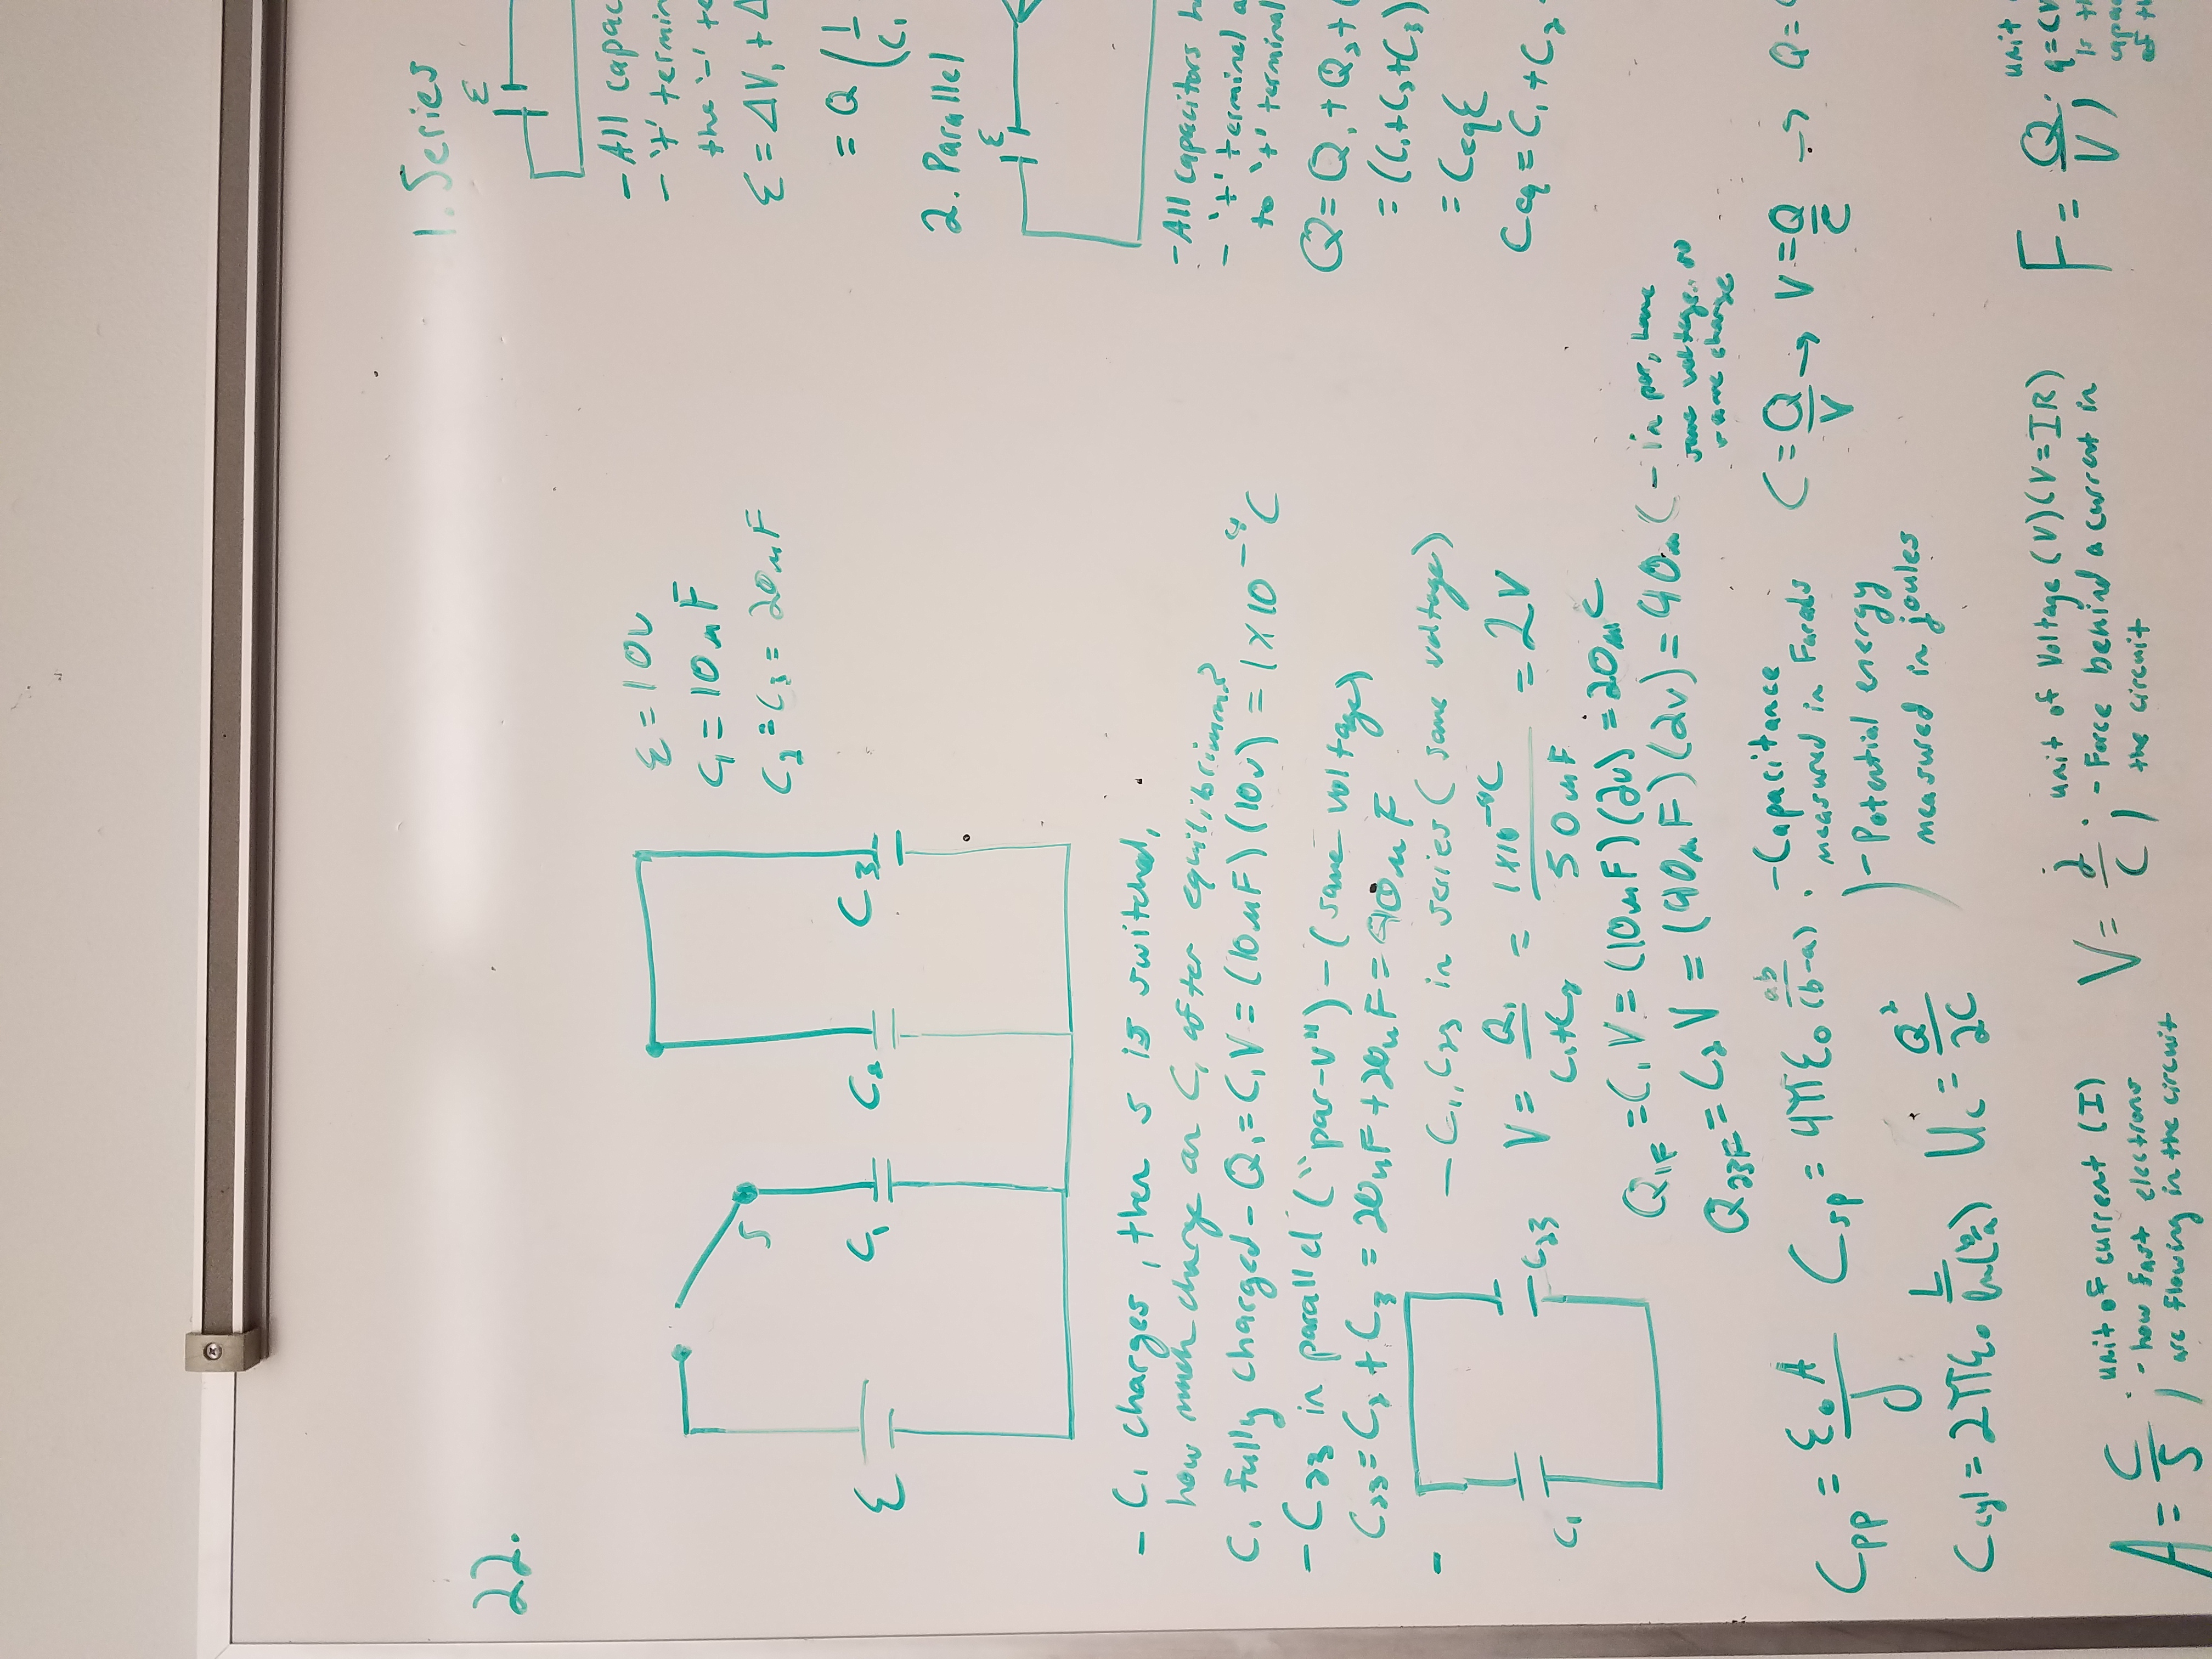 22.
S
ε
C₁
C₂
C₃
ε = 10v
C₁ = 10μF
C₂ = C₃ = 20μF
- C₁ charges, then s is switched,
how much charge on C₁ after equilibrimm?
C₁ fully charged - Q₁ = C₁V = (10μF)(10v) = 1×10⁻⁴C
- C₂₃ in parallel ("par-v") - (same voltage)
C₂₃ = C₂ + C₃ = 20μF + 20μF = 40μF
-
C₁
C₂₃
- C₁, C₂₃ in series (same voltage)
V = Q₁/(C₁+C₂) = 1×10⁻⁴C/50μF = 2V
Q₁F = C₁V = (10μF)(2v) = 20μC
Q₂₃F = C₂V = (40μF)(2v) = 40μC - in par, have
same voltage, so
same charge
Cpp = ε₀A/d
Csp = 4πε₀ ab/(b-a)
- Capacitance
measured in Farads
- Potential energy
measured in joules
C = Q/V → V = Q/C → Q =
Ccyl = 2πε₀ L/ln(b/a)
Uc = Q²/2C
A = C/S ;
unit of current (I)
- how fast electrons
are flowing in the circuit
V = j/C ;
unit of Voltage (V) (V=IR)
- Force behind a current in
the circuit
F = Q/V ;
unit
q=CV
is th
capac
of th
1. Series
ε
- All capac
- '+' termin
the '-' te
ε = ΔV₁ + Δ
= Q (1/C₁
2. Parallel
ε
- All capacitors h
- '+' terminal a
to '+' terminal
Q = Q₁ + Q₂ + (
= (C₁+C₂+C₃)
= Ceqε
Ceq = C₁ + C₂